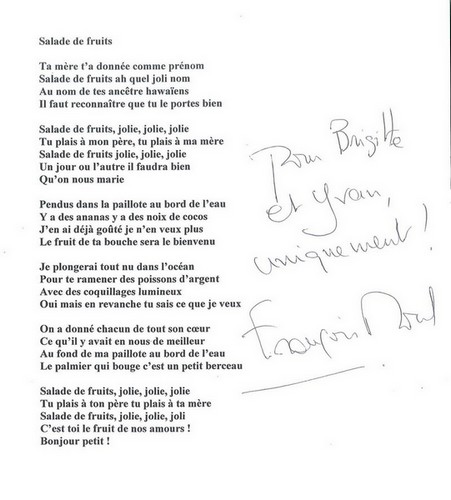 Salade de fruits
Ta mère t'a donnée comme prénom
Salade de fruits ah quel joli nom
Au nom de tes ancêtre hawaïens
Il faut reconnaître que tu le portes bien
Salade de fruits, jolie, jolie, jolie
Tu plais à mon père, tu plais à ma mère
Salade de fruits, jolie, jolie, jolie
Un jour ou l'autre il faudra bien
Qu'on nous marie
Pendus dans la paillote au bord de l'eau
Y a des ananas y a des noix de cocos
J'en ai déjà goûté je n'en veux plus
Le fruit de ta bouche sera le bienvenu
Je plongerai tout nu dans l'océan
Pour te ramener des poissons d'argent
Avec des coquillages lumineux
Oui mais en revanche tu sais ce que je veux
On a donné chacun de tout son cœur
Ce qu'il y avait en nous de meilleur
Au fond de ma paillote au bord de l'eau
Le palmier qui bouge c'est un petit berceau
Salade de fruits, jolie, jolie, jolie
Tu plais à ton père tu plais à ta mère
Salade de fruits, jolie, jolie, joli
C'est toi le fruit de nos amours !
Bonjour petit !
Pour Brigitte
et Yvan,
uniquement !
François